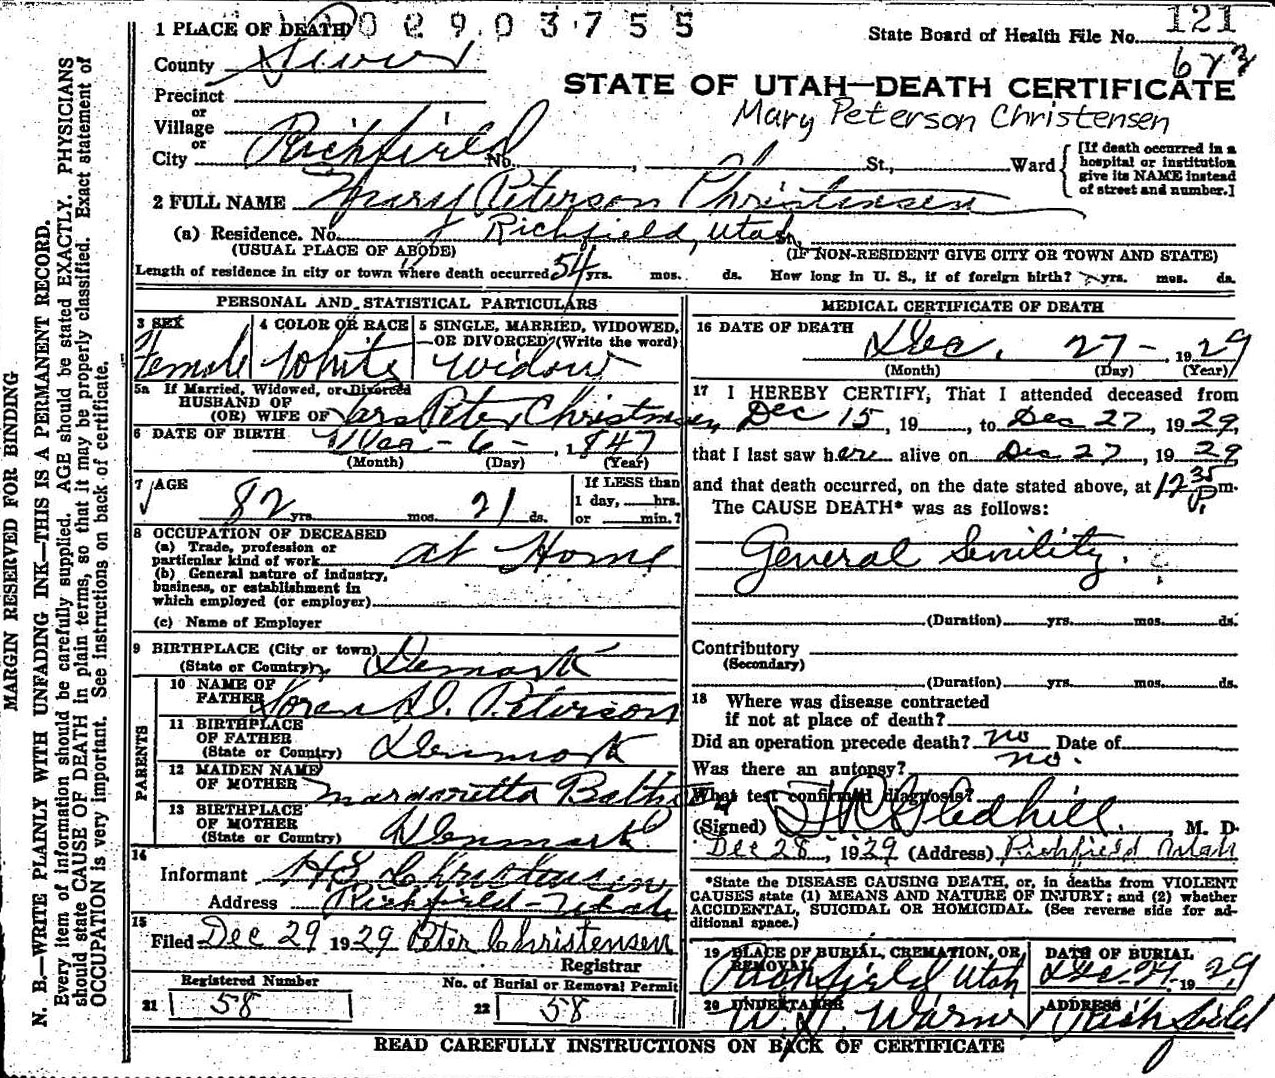 1 PLACE OF DEATH 002903755
State Board of Health File No. 121
County Sevier
STATE OF UTAH—DEATH CERTIFICATE
Precinct
Mary Peterson Christensen
or
Village
or
City Richfield No. , St., Ward
[If death occurred in a hospital or institution give its NAME instead of street and number.]
2 FULL NAME Mary Peterson Christensen
(a) Residence. No. Richfield, Utah
(USUAL PLACE OF ABODE) (IF NON-RESIDENT GIVE CITY OR TOWN AND STATE)
Length of residence in city or town where death occurred 54 yrs. mos. ds. How long in U. S., if of foreign birth? yrs. mos. ds.
PERSONAL AND STATISTICAL PARTICULARS
3 SEX
Female
4 COLOR OR RACE
White
5 SINGLE, MARRIED, WIDOWED,
OR DIVORCED? (Write the word)
Widow
5a If Married, Widowed, or Divorced
HUSBAND OF
(OR) WIFE OF Lars Peter Christensen
6 DATE OF BIRTH 6 - , 1847
(Month) (Day) (Year)
7 AGE
82 yrs. mos. 21 ds.
If LESS than
1 day, hrs.
or min.?
8 OCCUPATION OF DECEASED
(a) Trade, profession or
particular kind of work at Home
(b) General nature of industry,
business, or establishment in
which employed (or employer)
(c) Name of Employer
9 BIRTHPLACE (City or town)
(State or Country) Demark
PARENTS
10 NAME OF
FATHER Soren Peterson
11 BIRTHPLACE
OF FATHER
(State or Country) Denmark
12 MAIDEN NAME
OF MOTHER Margaretta
13 BIRTHPLACE
OF MOTHER
(State or Country) Denmark
14
Informant Christensen
Address Richfield - Utah
15
Filed Dec 29 1929 Peter Christensen
Registrar
Registered Number
21 58
No. of Burial or Removal Permit
22 58
MEDICAL CERTIFICATE OF DEATH
16 DATE OF DEATH
Dec. 27 - , 1929
(Month) (Day) (Year)
17 I HEREBY CERTIFY, That I attended deceased from
Dec 15, 19 , to Dec 27, 1929,
that I last saw her alive on Dec 27, 1929
and that death occurred, on the date stated above, at 12 35 P m.
The CAUSE DEATH* was as follows:
General Senility.
(Duration) yrs. mos. ds.
Contributory
(Secondary)
(Duration) yrs. mos. ds.
18 Where was disease contracted
if not at place of death?
Did an operation precede death? no Date of
Was there an autopsy? no.
What test confirmed diagnosis?
(Signed) Gledhill, M. D.
Dec 28, 1929 (Address) Richfield Utah
*State the DISEASE CAUSING DEATH, or, in deaths from VIOLENT
CAUSES state (1) MEANS AND NATURE OF INJURY; and (2) whether
ACCIDENTAL, SUICIDAL OR HOMICIDAL. (See reverse side for ad-
ditional space.)
19 PLACE OF BURIAL, CREMATION, OR
REMOVAL
Richfield Utah
DATE OF BURIAL
Dec. 1929
20 UNDERTAKER
Warner
ADDRESS
Richfield
READ CAREFULLY INSTRUCTIONS ON BACK OF CERTIFICATE
MARGIN RESERVED FOR BINDING
N. B.—WRITE PLAINLY WITH UNFADING INK—THIS IS A PERMANENT RECORD.
Every item of information should be carefully supplied. AGE should be stated EXACTLY. PHYSICIANS
should state CAUSE OF DEATH in plain terms, so that it may be properly classified. Exact statement of
OCCUPATION is very important. See instructions on back of certificate.